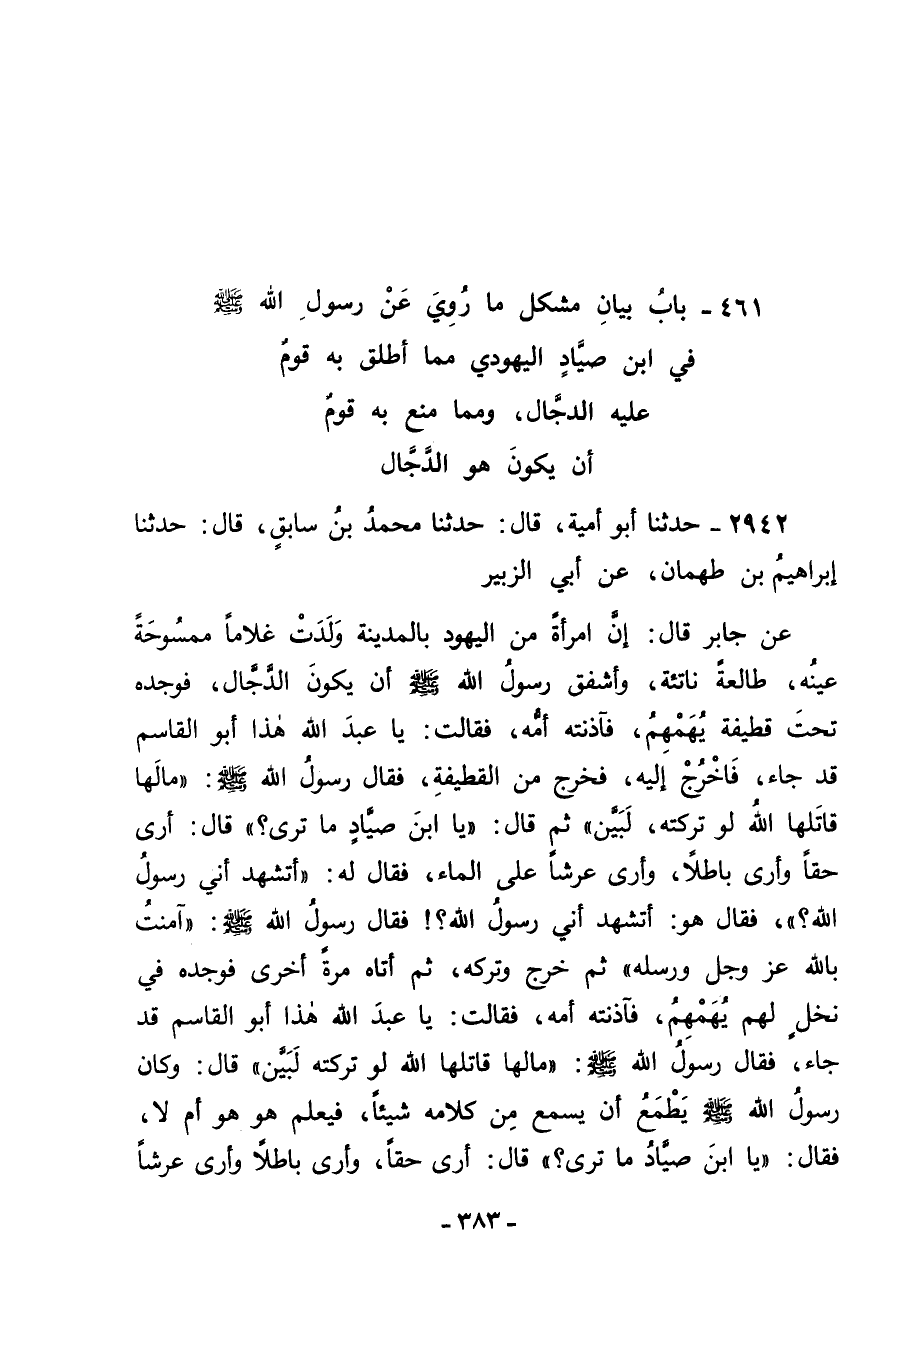 ٤٦١ ـ بابُ بيانِ مشكل ما رُوِيَ عَنْ رسولِ الله ﷺ
في ابن صيَّادٍ اليهودي مما أطلق به قومٌ
عليه الدجَّال، ومما منع به قومٌ
أن يكونَ هو الدَّجَّال
٢٩٤٢ ـ حدثنا أبو أمية، قال: حدثنا محمدُ بنُ سابقٍ، قال: حدثنا
إبراهيمُ بن طهمان، عن أبي الزبير
عن جابر قال: إنَّ امرأةً من اليهود بالمدينة وَلَدَتْ غلاماً ممسُوحَةً
عينُه، طالعةً ناتئة، وأشفق رسولُ الله ﷺ أن يكونَ الدَّجَّال، فوجده
تحتَ قطيفة يُهَمْهِمُ، فآذنته أمُّه، فقالت: يا عبدَ الله هٰذا أبو القاسم
قد جاء، فَاخْرُجْ إليه، فخرج من القطيفةِ، فقال رسولُ الله ﷺ: «مالَها
قاتَلها اللهُ لو تركته، لَبَيَّن» ثم قال: «يا ابنَ صيَّادٍ ما ترى؟» قال: أرى
حقاً وأرى باطلًا، وأرى عرشاً على الماء، فقال له: «أتشهد أني رسولُ
الله؟»، فقال هو: أتشهد أني رسولُ الله؟! فقال رسولُ الله ﷺ: «آمنتُ
بالله عز وجل ورسله» ثم خرج وتركه، ثم أتاه مرةً أخرى فوجده في
نخلٍ لهم يُهَمْهِمُ، فآذنته أمه، فقالت: يا عبدَ الله هٰذا أبو القاسم قد
جاء، فقال رسولُ الله ﷺ: «مالها قاتلها الله لو تركته لَبَيَّن» قال: وكان
رسولُ الله ﷺ يَطْمَعُ أن يسمع مِن كلامه شيئاً، فيعلم هو هو أم لا،
فقال: «يا ابنَ صيَّادُ ما ترى؟» قال: أرى حقاً، وأرى باطلًا وأرى عرشاً
ـ ٣٨٣ ـ